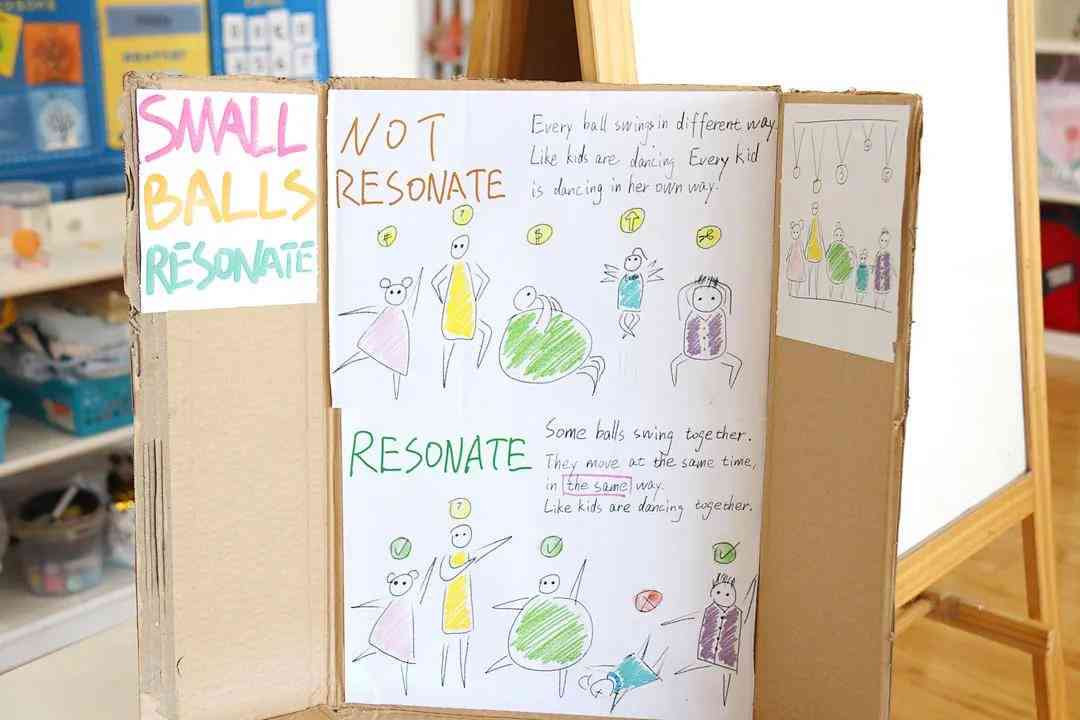 SMALL
BALLS
RESONATE
NOT
RESONATE
Every ball swings in different way.
Like kids are dancing Every kid
is dancing in her own way.
#
?
$
RESONATE
Some balls swing together.
They move at the same time,
in the same way.
Like kids are dancing together.
?